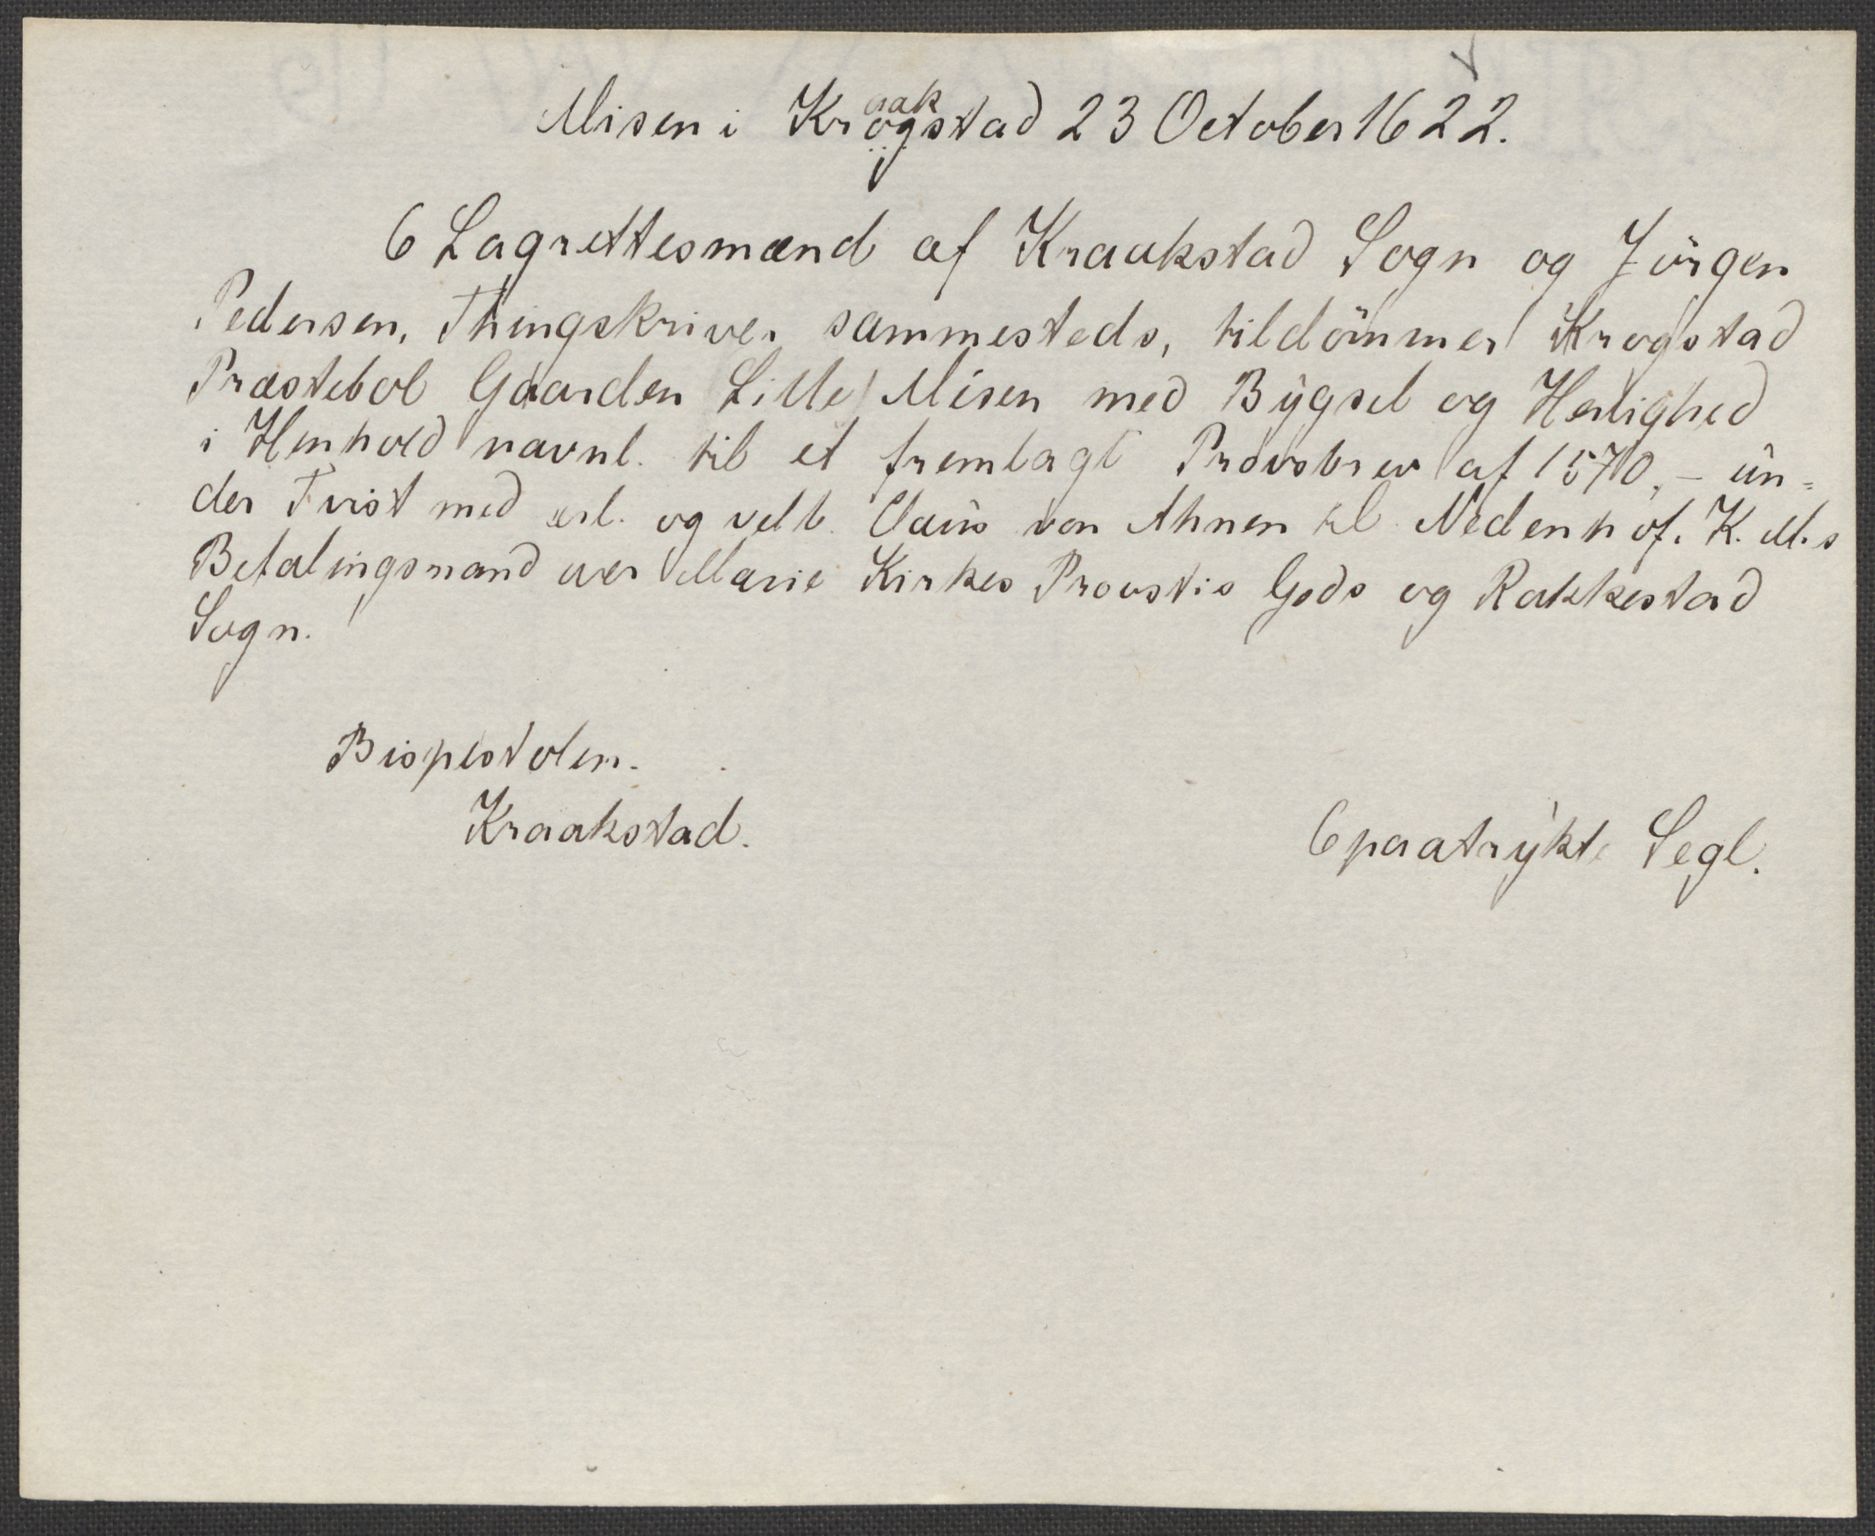 Misen i Krogstad 23 October 1622.
aak
6 Lagrettesmænd af Kraakstad Sogn og Jörgen
Pedersen, Thingskriver sammesteds, tildömmer Krogstad
Præstebol Gaarden Lille Misen med Bygsel og Herlighed
i Henhold navnl. til et fremlagt Provsbrev af 1570, – un=
der Tvist med ærl. og velb. Claus von Ahnen til Nedenhof. K. M.s
Befalingsmand over Marie Kirkes Provstis Gods og Rakkestad
Sogn.
Bispestolen.
Kraakstad.
6 paatrykte Segl.